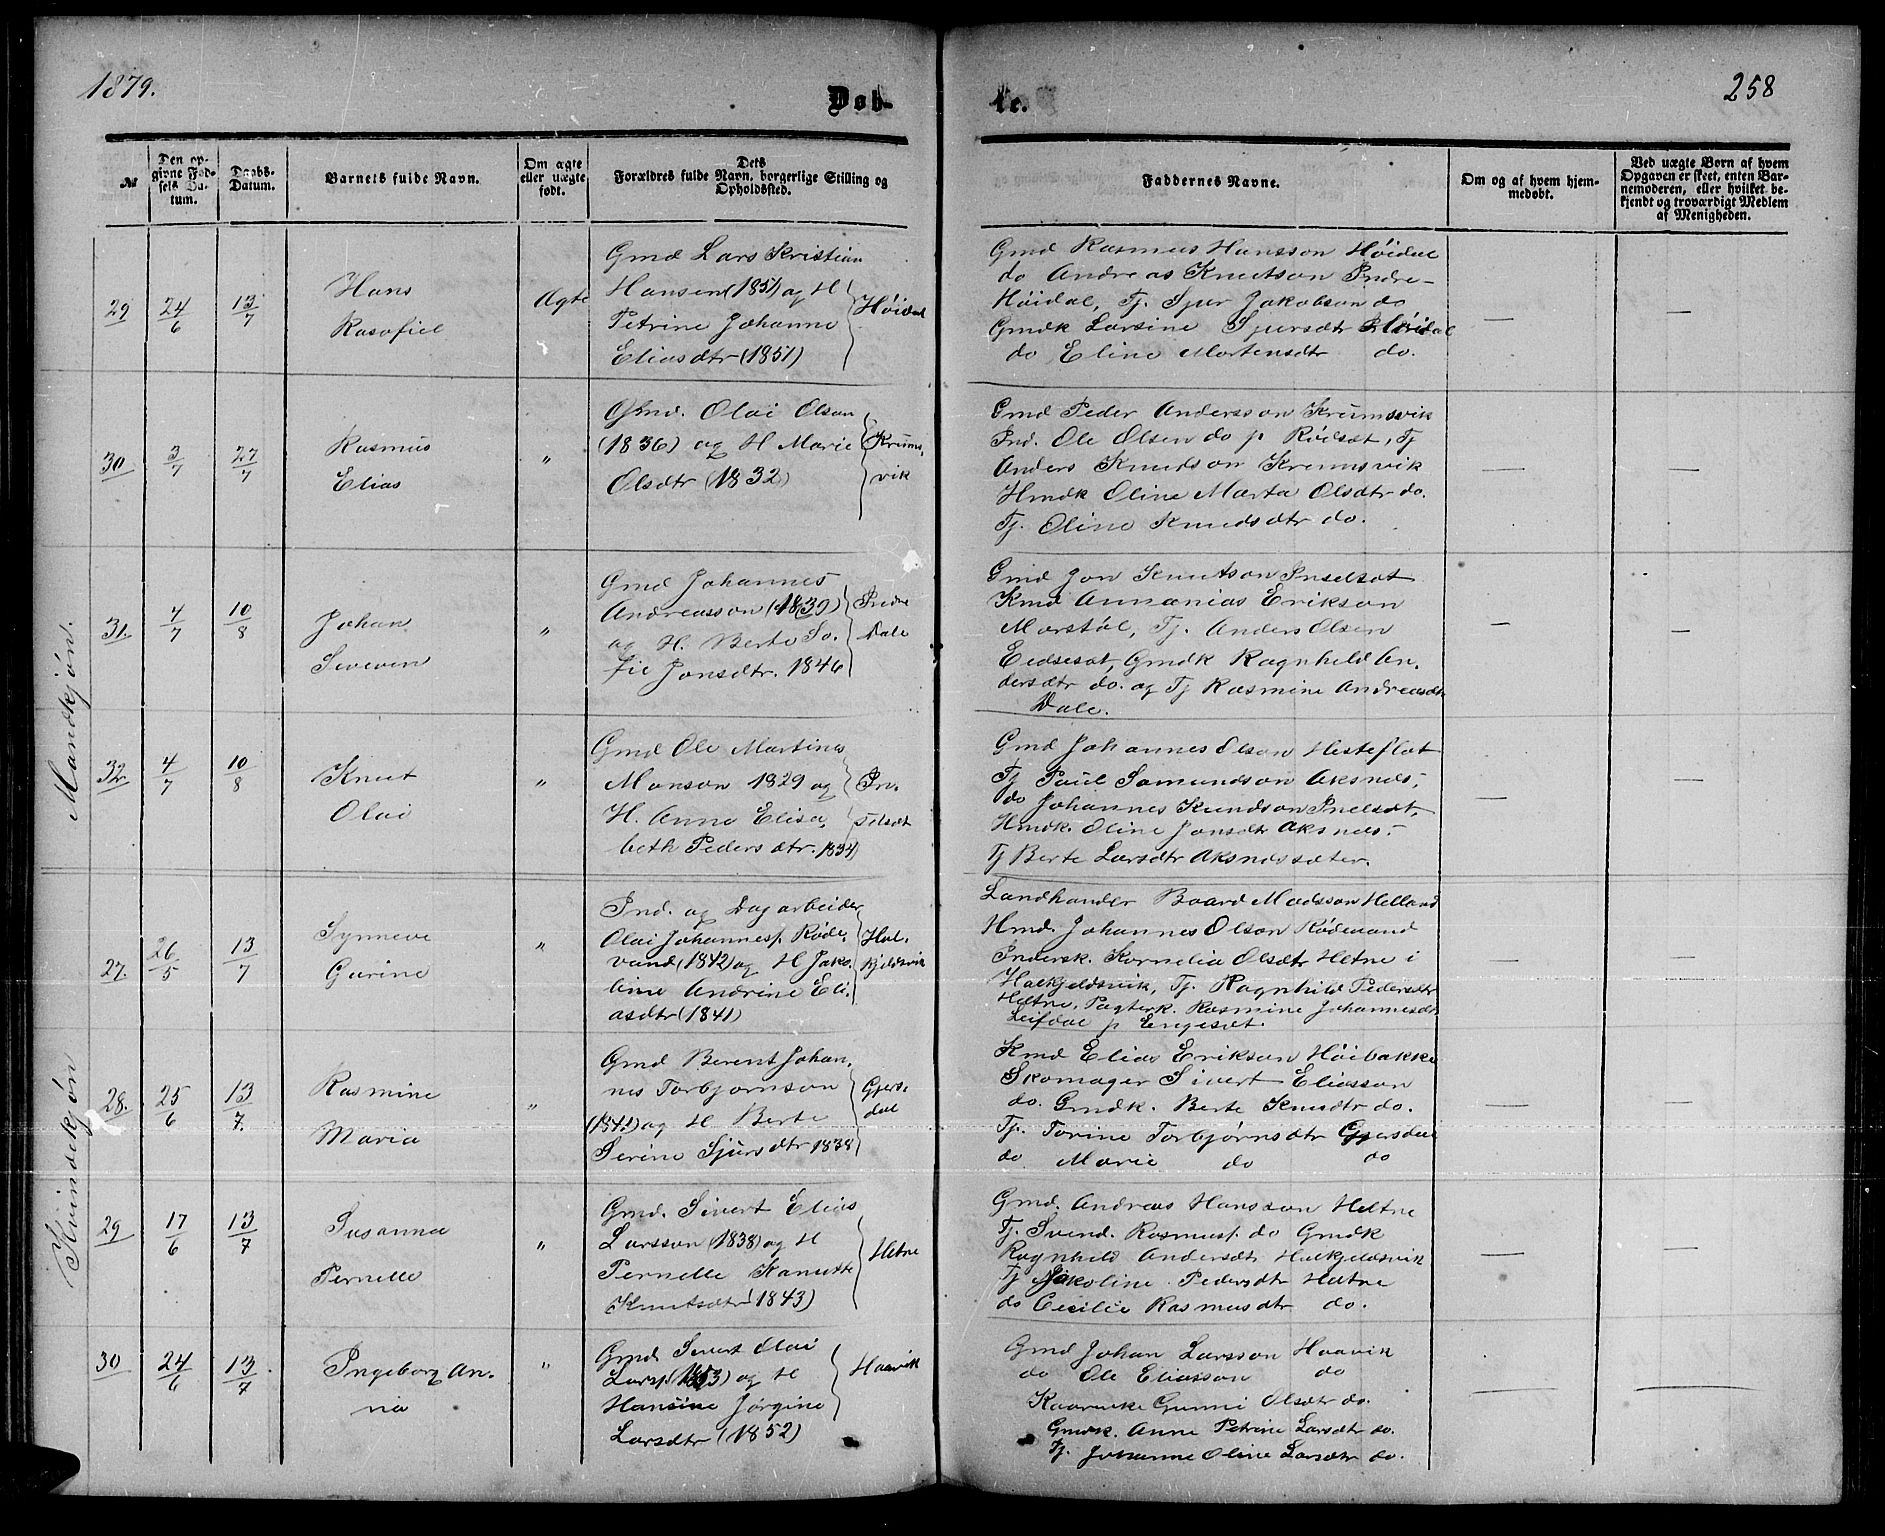 1879.
258
Døb-
te.
№
Den op-
givne Fød-
sels Da-
tum.
Daabs-
Datum.
Barnets fulde Navn.
Om ægte
eller uægte
født.
Dets
Forældres fulde Navn, borgerlige Stilling og
Opholdssted.
Faddernes Navne.
Om og af hvem hjem-
medøbt.
Ved uægte Børn af hvem
Opgaven er skeet, enten Bar-
nemoderen, eller hvilket be-
kjendt og troværdigt Medlem
af Menigheden.
Mandkjøn.
29 24/6 13/7
Hans
Rasofiel
Ægte
Gmd Lars Kristian
Hansen (1851) og H
Petrine Johanne
Eliasdtr (1851)
Høidal
Gmd Rasmus Hansson Høidal
do Andreas Knutson Indre-
Høidal, Tj. Sjur Jakobson do
Gmdk Larsine Sjursdtr Høidal
do Eline Mortensdtr do.
— —
30 3/7 27/7
Rasmus
Elias
"
Gmd. Olai Olson
(1836) og H Marie
Olsdtr (1832)
Krums-
vik
Gmd Peder Andersson Krumsvik
Ind. Ole Olsen do p Rødsæt, Tj
Anders Knudson Krumsvik
Hmdk Oline Marta Olsdtr do.
Tj. Oline Knudsdtr do.
— —
31. 4/7 10/8
Johan
Severen
"
Gmd Johannes
Andreasson (1839)
og H. Berte So-
fie Jonsdtr. 1846
Indre
Dale
Gmd Jon Knutson Inselsæt
Kmd Annanias Erikson
Marstøl, Tj. Anders Olsen
Eidseset, Gmdk Ragnhild An-
dersdtr do. og Tj Rasmine Andreasdtr
Dale.
— —
32. 4/7 10/8
Knut
Olai
"
Gmd Ole Martinus
Monson 1829 og
H. Anne Elisa-
beth Pedersdtr. 1834)
In-
selsæt
Gmd Johannes Olson Hesteflot
Tj Paul Samundson Aksnes,
do Johannes Knudson Inelsæt,
Hmdk. Oline Jonsdtr Aksnes.
Tj Berte Larsdtr Aksnessæter.
— —
Kvindekjøn
27. 26/5 13/7
Synneve
Gurine
"
Ind. og Dagarbeider
Olai Johannesf. Røde-
vand (1842) og H Jako-
bine Andrine Eli-
asdtr (1841)
Hal-
kjeldsvik
Landhandler Baard Madsson Helland
Hmd. Johannes Olson Rødevand
Indersk. Kornelia Olsdtr Hetne i
Halkjeldsvik, Tj. Ragnhild Pedersdtr
Hetne, Pagterk. Rasmine Johannesdtr
Leifdal p Engeset.
— —
28. 25/6 13/7.
Rasmine
Maria
"
Gmd Berent Johan-
nes Torbjørnson
(1842) og H Berte
Serine Sjursdtr 1838)
Gjers-
dal
Kmd Elias Erikson Høibakke
Skomager Sivert Eliasson
do. Gmdk. Berte Knusdtr do.
Tj. Torine Torbjørnsdtr Gjersdal
do Marie do do
— —
29 17/6 13/7
Susanna
Pernelle
"
Gmd. Sivert Elias
Larsson (1838) og H
Pernelle Kanutte
Knutsdtr (1843)
Hetne
Gmd. Andreas Hansson Hetne
Tj. Svend. Rasmusf. do Gmdk
Ragnhild Andersdtr Halkjeldsvik
Tj Jakoline Pedersdtr Hetne
do Cecilie Rasmusdtr do.
— —
30 24/6 13/7
Ingeborg An-
na
"
Gmd Sivert Olai
Larsf (1853) og H
Hansine Jørgine
Larsdtr (1852)
Haavik
Gmd Johan Larsson Haavik
do Ole Eliasson do
Kaarenke Gunni Olsdtr do.
Gmdk. Anne Petrine Larsdtr do.
Tj. Johanne Oline Larsdtr do.
— —